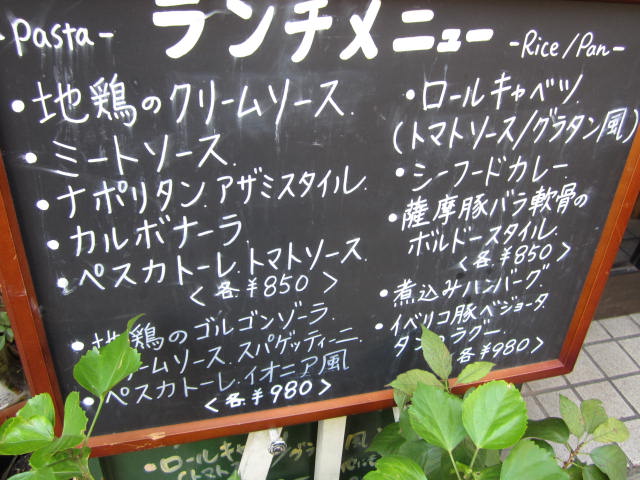 ランチメニュー
-Pasta-
・地鶏のクリームソース.
・ミートソース.
・ナポリタン.アザミスタイル.
・カルボナーラ
・ペスカトーレ.トマトソース.
<各.¥850 >
・地鶏のゴルゴンゾーラ.
ームソース.スパゲッティーニ
・ペスカトーレ.イオニア風
<各.¥980>
-Rice/Pan-
・ロールキャベツ
(トマトソース/グラタン風)
・シーフードカレー
・薩摩豚バラ軟骨の
ボルドースタイル.
<各.¥850>
・煮込みハンバーグ.
・イベリコ豚ベジョータ
タンのラグー.
各.¥980>
・ロールキャ
(トマト